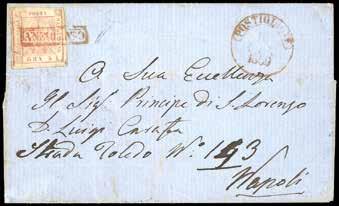 POSTA
ANNULLATO
(POSTIGLIONE)
1859
A Sua Eccellenza
Il Sigr Principe di S. Lorenzo
D. Luigi Carafa
Strada Toledo No. 193
Napoli